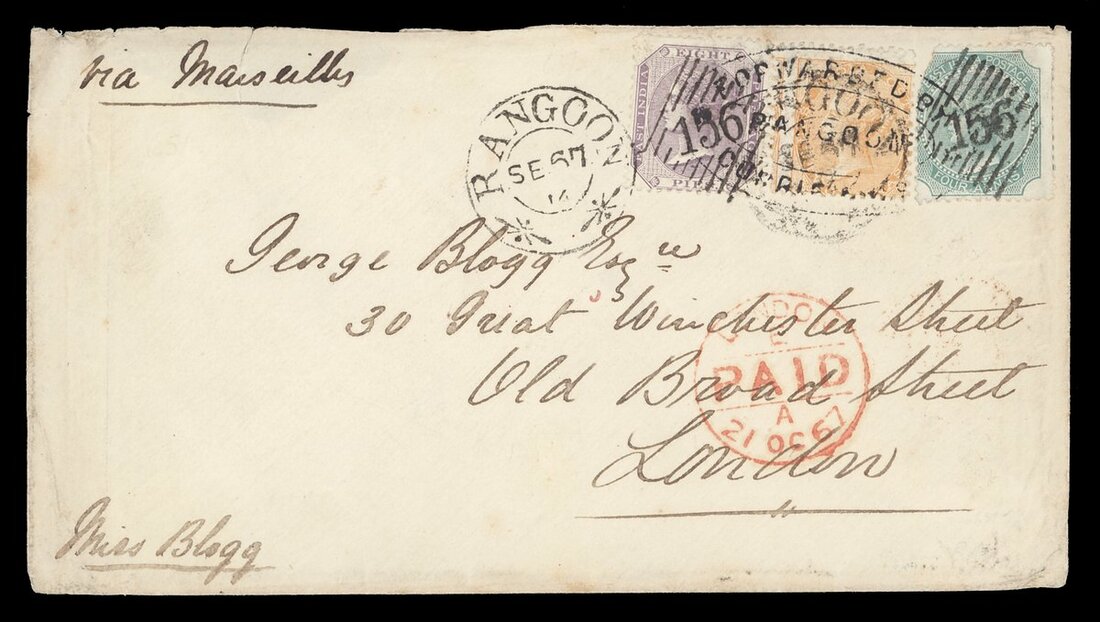 via Marseilles
RANGOON
SE 67
14
EIGHT
EAST INDIA
PIE
156
FORWARDED BY
RANGOON
156
FOUR
George Blogg Esqre
30 Great Winchester Street
Old Broad Street
London
LONDON
PAID
A
21 OC 67
Miss Blogg